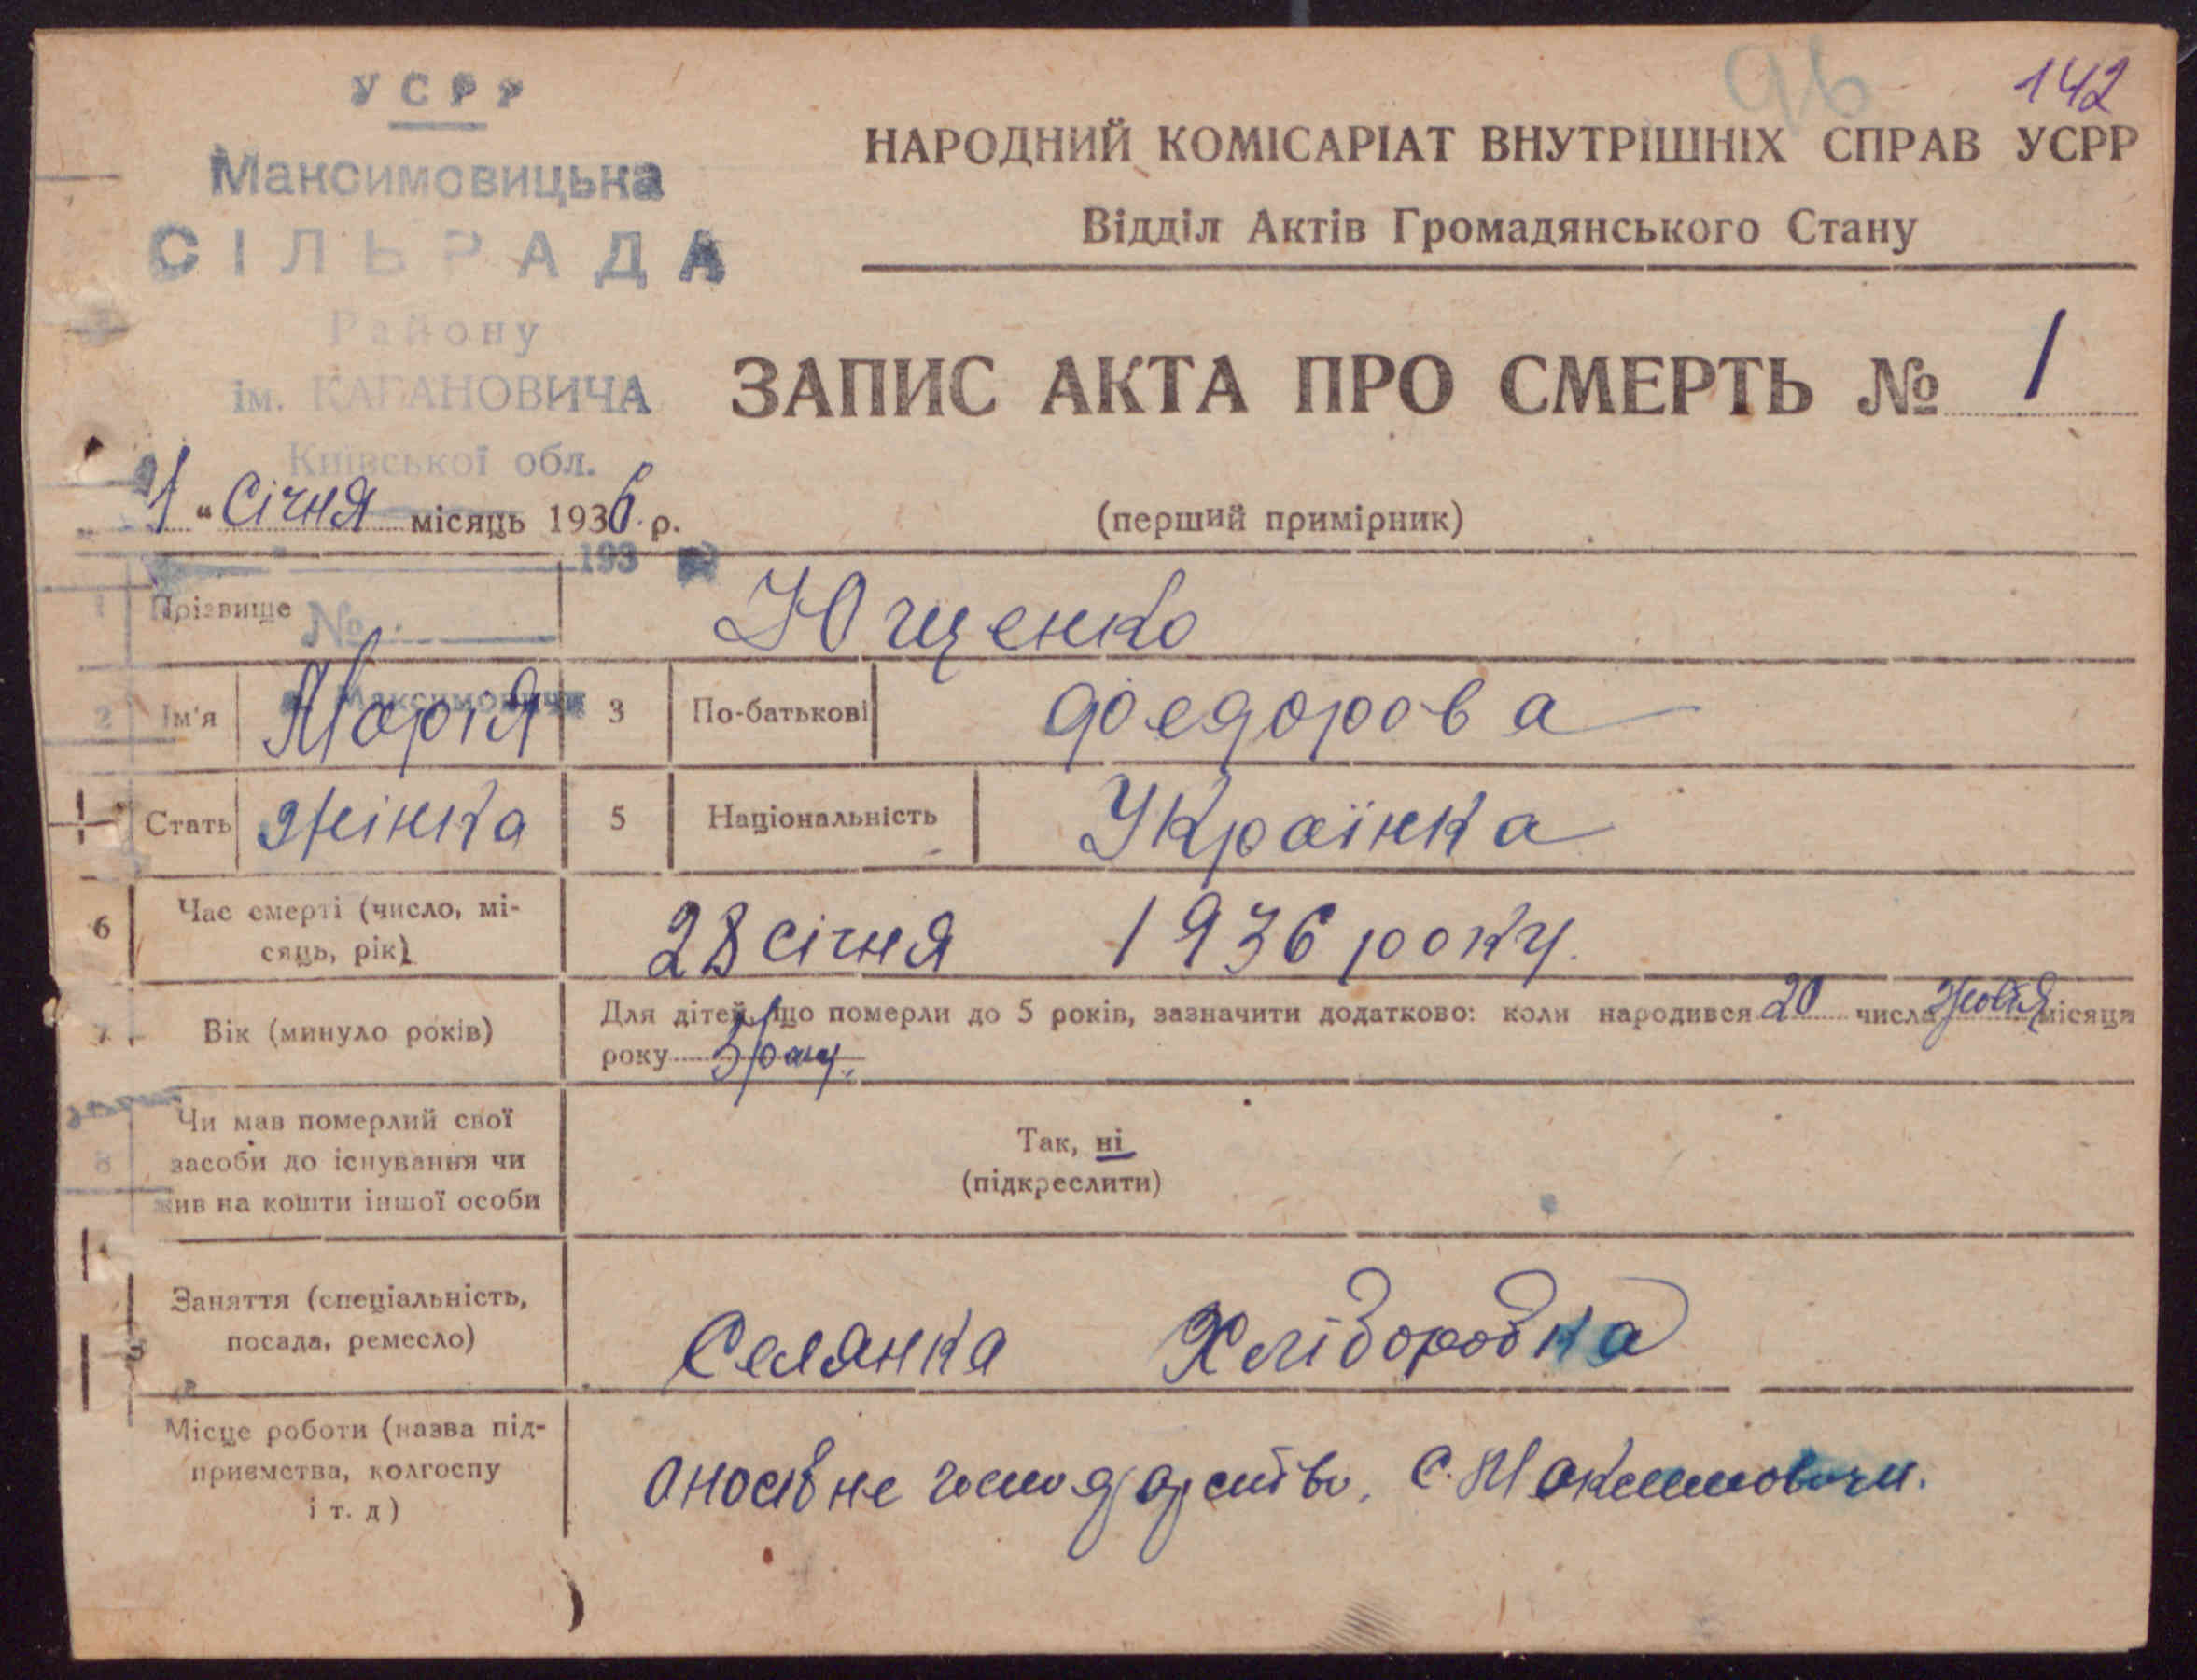 96
142
УСРР
Максимовицька
СІЛЬРАДА
Району
ім. КАГАНОВИЧА
Київської обл.
НАРОДНИЙ КОМІСАРІАТ ВНУТРІШНІХ СПРАВ УСРР
Відділ Актів Громадянського Стану
ЗАПИС АКТА ПРО СМЕРТЬ № 1
"Січня місяць 1936 р.
(перший примірник)
193
1 Прізвище Ющенко
№
с. Максимовичи
2 Ім'я Марія 3 По-батькові Федорова
Стать жінка 5 Національність Українка
6 Час смерті (число, мі-
сяць, рік) 28 січня 1936 року.
7 Вік (минуло років) Для дітей, що померли до 5 років, зазначити додатково: коли народився 20 числа місяця
року
8 Чи мав померлий свої
засоби до існування чи
жив на кошти іншої особи
Так, ні
(підкреслити)
Заняття (спеціальність,
посада, ремесло) Селянка Хліборобка
Місце роботи (назва під-
приємства, колгоспу
і т. д) господарство, с. Максимовичи.